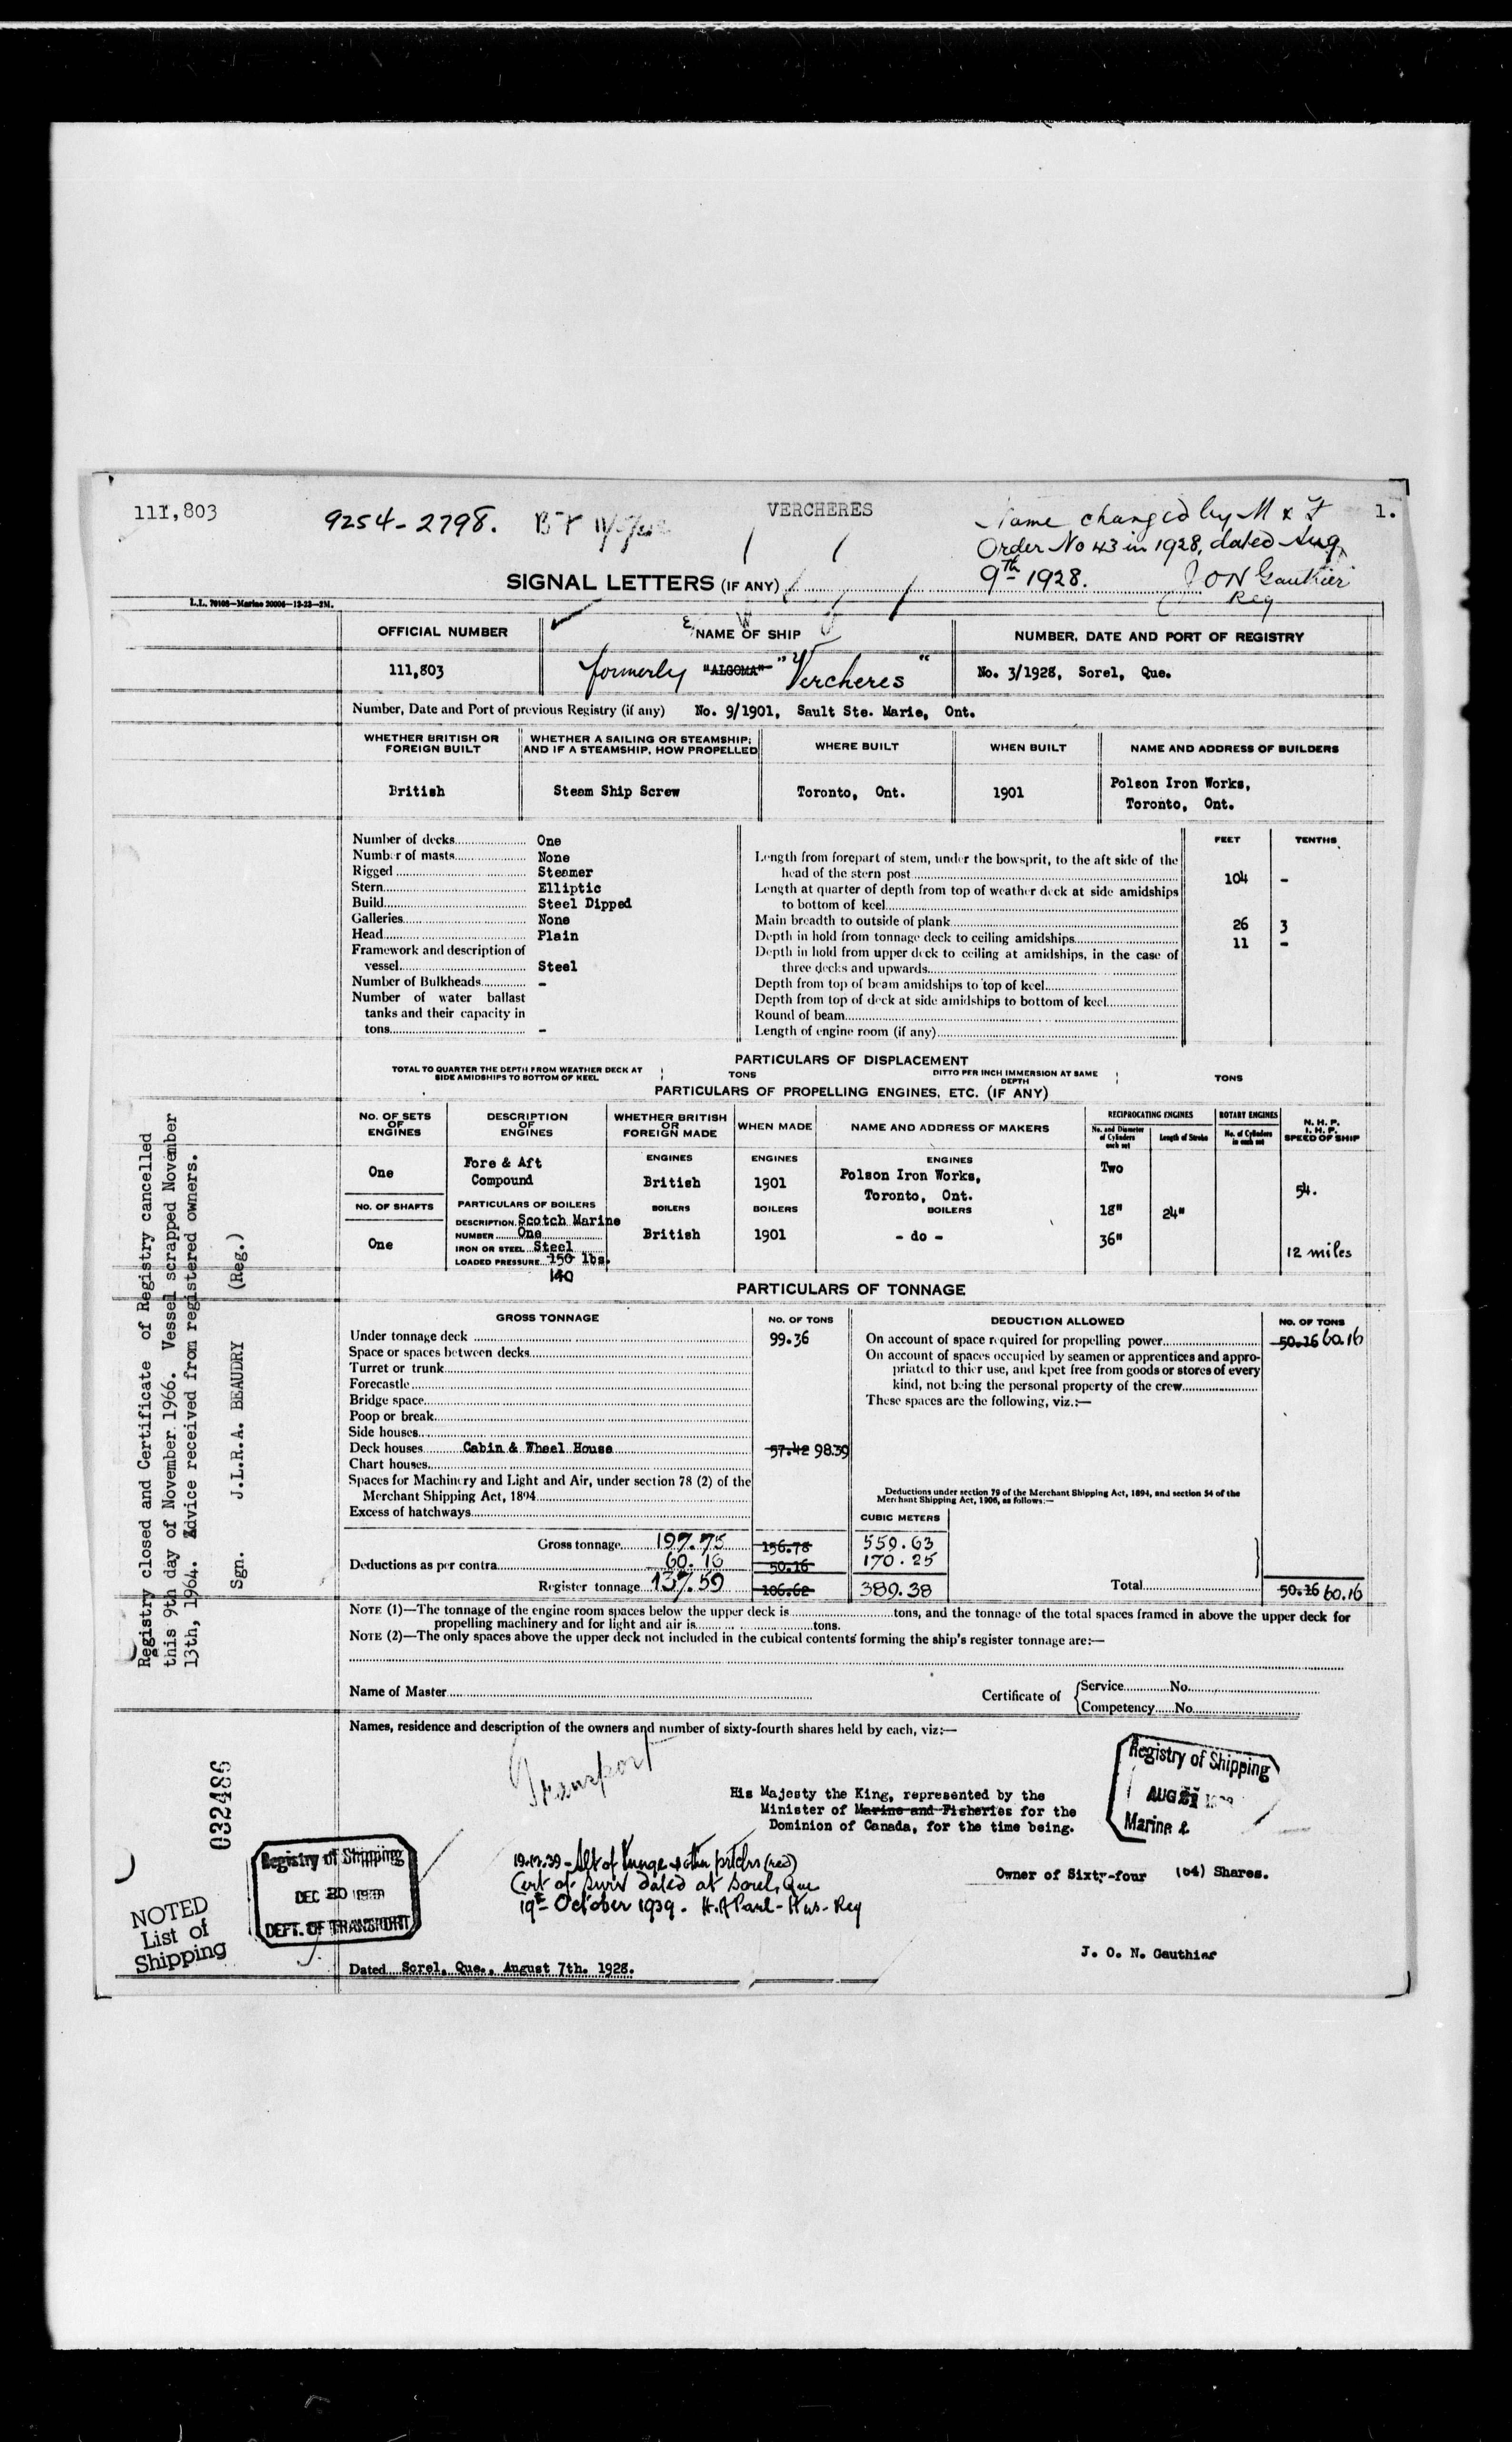 111,803
9254-2798.
VERCHERES
Name changed by M & F
1.
Order No 43 in 1928, dated Aug,
9th 1928.
J O N Gauthier
Reg
SIGNAL LETTERS (IF ANY)
L.L. 70105—Marine 30006—12-23—2M.
OFFICIAL NUMBER
NAME OF SHIP
NUMBER, DATE AND PORT OF REGISTRY
111,803
formerly "ALGOMA" "Vercheres"
No. 3/1928, Sorel, Que.
Number, Date and Port of previous Registry (if any) No. 9/1901, Sault Ste. Marie, Ont.
WHETHER BRITISH OR FOREIGN BUILT
WHETHER A SAILING OR STEAMSHIP; AND IF A STEAMSHIP, HOW PROPELLED
WHERE BUILT
WHEN BUILT
NAME AND ADDRESS OF BUILDERS
British
Steam Ship Screw
Toronto, Ont.
1901
Polson Iron Works,
Toronto, Ont.
Number of decks One
Number of masts None
Rigged Steamer
Stern Elliptic
Build Steel Dipped
Galleries None
Head Plain
Framework and description of
vessel Steel
Number of Bulkheads -
Number of water ballast
tanks and their capacity in
tons -
FEET TENTHS
Length from forepart of stem, under the bowsprit, to the aft side of the
head of the stern post 104 -
Length at quarter of depth from top of weather deck at side amidships
to bottom of keel
Main breadth to outside of plank 26 3
Depth in hold from tonnage deck to ceiling amidships 11 -
Depth in hold from upper deck to ceiling at amidships, in the case of
three decks and upwards
Depth from top of beam amidships to top of keel
Depth from top of deck at side amidships to bottom of keel
Round of beam
Length of engine room (if any)
PARTICULARS OF DISPLACEMENT
TOTAL TO QUARTER THE DEPTH FROM WEATHER DECK AT SIDE AMIDSHIPS TO BOTTOM OF KEEL
TONS
DITTO PER INCH IMMERSION AT SAME DEPTH
TONS
PARTICULARS OF PROPELLING ENGINES, ETC. (IF ANY)
No. OF SETS OF ENGINES
DESCRIPTION OF ENGINES
WHETHER BRITISH OR FOREIGN MADE
WHEN MADE
NAME AND ADDRESS OF MAKERS
RECIPROCATING ENGINES
No. and Diameter of Cylinders each set
Length of Stroke
ROTARY ENGINES
No. of Cylinders in each set
N. H. P.
I. H. P.
SPEED OF SHIP
One
Fore & Aft
Compound
ENGINES
British
ENGINES
1901
ENGINES
Polson Iron Works,
Toronto, Ont.
Two
54.
NO. OF SHAFTS
One
PARTICULARS OF BOILERS
DESCRIPTION. Scotch Marine
NUMBER One
IRON OR STEEL Steel
LOADED PRESSURE 150 lbs.
140
BOILERS
British
BOILERS
1901
BOILERS
- do -
18"
24"
36"
12 miles
PARTICULARS OF TONNAGE
GROSS TONNAGE
NO. OF TONS
DEDUCTION ALLOWED
NO. OF TONS
Under tonnage deck 99.36
Space or spaces between decks
Turret or trunk
Forecastle
Bridge space
Poop or break
Side houses
Deck houses Cabin & Wheel House 57.42 98.39
Chart houses
Spaces for Machinery and Light and Air, under section 78 (2) of the
Merchant Shipping Act, 1894
Excess of hatchways
Gross tonnage 197.75 156.78
Deductions as per contra 60.16 50.16
Register tonnage 137.59 106.62
On account of space required for propelling power 50.16 60.16
On account of spaces occupied by seamen or apprentices and appro-
priated to thier use, and kpet free from goods or stores of every
kind, not being the personal property of the crew
These spaces are the following, viz.:—
Deductions under section 79 of the Merchant Shipping Act, 1894, and section 54 of the
Merchant Shipping Act, 1906, as follows:—
CUBIC METERS
559.63
170.25
389.38
Total 50.16 60.16
NOTE (1)—The tonnage of the engine room spaces below the upper deck is tons, and the tonnage of the total spaces framed in above the upper deck for
propelling machinery and for light and air is tons.
NOTE (2)—The only spaces above the upper deck not included in the cubical contents forming the ship's register tonnage are:—
Name of Master
Certificate of
Service No.
Competency No.
Names, residence and description of the owners and number of sixty-fourth shares held by each, viz:—
Transport
His Majesty the King, represented by the
Minister of Marine and Fisheries for the
Dominion of Canada, for the time being.
Registry of Shipping
AUG
Marine &
Owner of Sixty-four (64) Shares.
19.12.39 - Alt of tonnge & other prtclrs (red)
Cert of Surv dated at Sorel, Que
19th October 1939. H.A Paul-Hus-Reg
J. O. N. Gauthier
Dated Sorel, Que., August 7th. 1928.
Registry closed and Certificate of Registry cancelled
this 9th day of November 1966. Vessel scrapped November
13th, 1964. Advice received from registered owners.
Sgn. J.L.R.A. BEAUDRY (Reg.)
032486
Registry of Shipping
DEC 20 1939
DEPT. OF TRANSPORT
NOTED
List of
Shipping